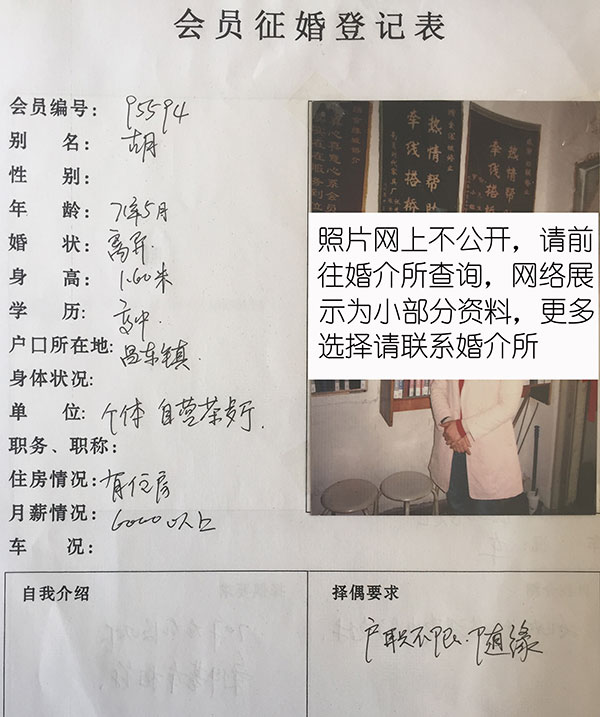 会员征婚登记表
会员编号: 95594
别 名: 胡
性 别:
年 龄: 71年5月
婚 状: 离异.
身 高: 1.60米
学 历: 高中
户口所在地: 吕东镇.
身体状况:
单 位: 个体 自营茶馆厅.
职务、职称:
住房情况: 有住房
月薪情况: 6000以上
车 况:
热情帮
牵线搭桥
热情帮助
牵线搭桥
照片网上不公开，请前
往婚介所查询，网络展
示为小部分资料，更多
选择请联系婚介所
自我介绍
择偶要求
户职不限.随缘